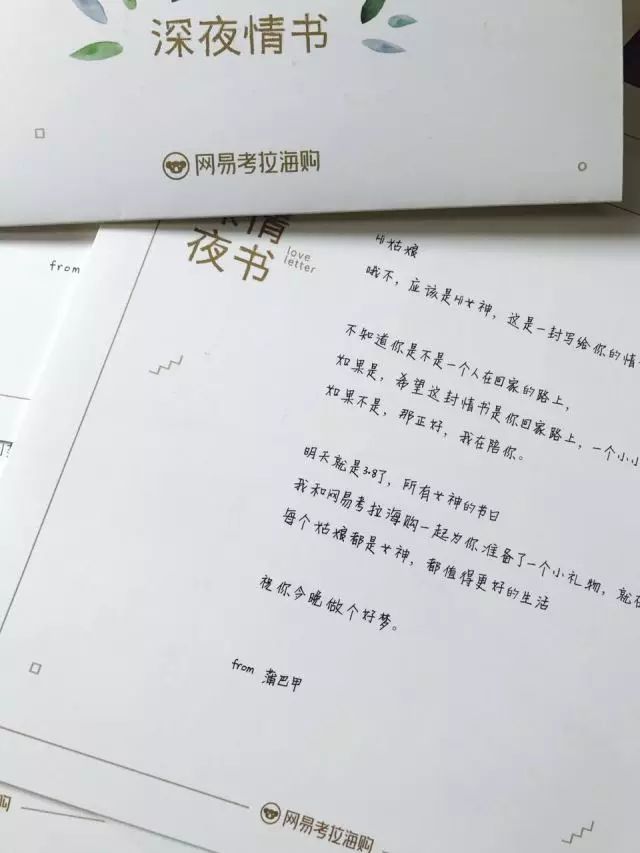 深夜情书
网易考拉海购
from
情
夜书
love
letter
Hi姑娘
哦不，应该是Hi女神，这是一封写给你的情
不知道你是不是一个人在回家的路上，
如果是，希望这封情书是你回家路上，一个小小
如果不是，那正好，我在陪你。
明天就是3.8了，所有女神的节日
我和网易考拉海购一起为你准备了一个小礼物，就在
每个姑娘都是女神，都值得更好的生活
祝你今晚做个好梦。
from 蒲巴甲
网易考拉海购
购